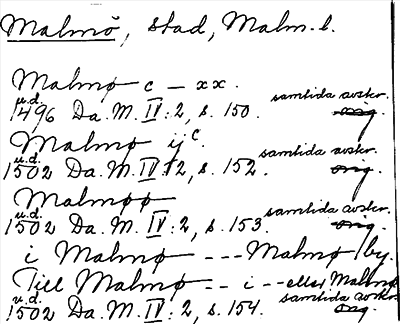 Malmö, stad, Malm. l.
Malmø c – xx.
u.d. samtida avskr.
1496 Da. M. IV: 2, s. 150. orig.
Malmø ijc
u.d. samtida avskr.
1502 Da. M. IV: 2, s. 152. orig.
Malmøø
u.d. samtida avskr.
1502 Da. M. IV: 2, s. 153. orig.
i Malmø --- Malmø by.
Till Malmø -- i -- eller Malmø
u.d. samtida avskr.
1502 Da. M. IV: 2, s. 154. orig.